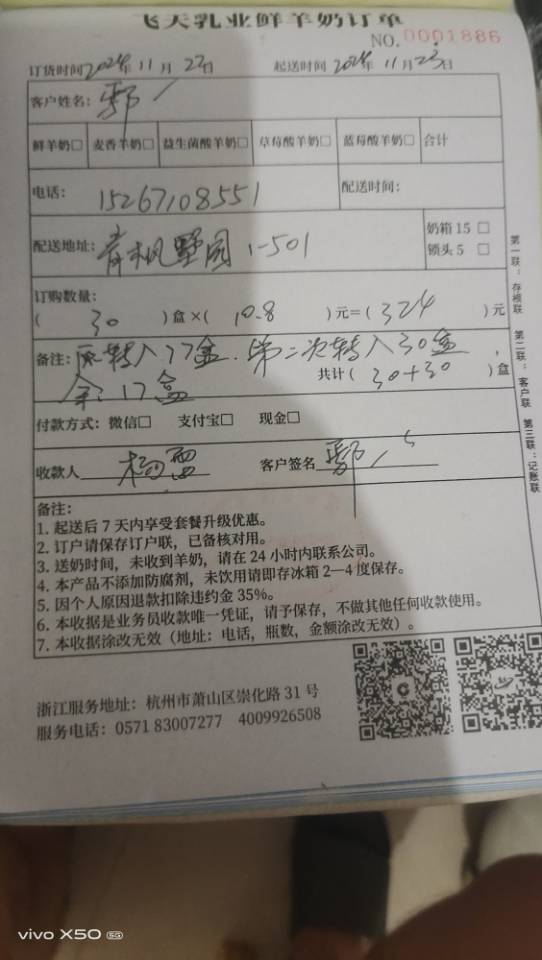 飞天乳业鲜羊奶订单
NO. 0001886
订货时间2024年11月27日 起送时间2024年11月23日
客户姓名：鄢
鲜羊奶□ 麦香羊奶□ 益生菌酸羊奶□ 草莓酸羊奶□ 蓝莓酸羊奶□ 合计
电话：15267108551 配送时间：
配送地址：青枫墅园1-501
奶箱 15 □
锁头 5 □
订购数量：
（ 30 ）盒×（ 10.8 ）元=（ 324 ）元
备注：转入17盒.第二次转入30盒，
余：17盒 共计（ 30+30 ）盒
付款方式：微信□ 支付宝□ 现金□
收款人 杨 客户签名
备注：
1. 起送后 7 天内享受套餐升级优惠。
2. 订户请保存订户联，已备核对用。
3. 送奶时间，未收到羊奶，请在 24 小时内联系公司。
4. 本产品不添加防腐剂，未饮用请即存冰箱 2—4 度保存。
5. 因个人原因退款扣除违约金 35%。
6. 本收据是业务员收款唯一凭证，请予保存，不做其他任何收款使用。
7. 本收据涂改无效（地址：电话，瓶数，金额涂改无效）。
第一联：存根联 第二联：客户联 第三联：记账联
浙江服务地址：杭州市萧山区崇化路 31 号
服务电话：0571 83007277 4009926508
vivo X50 5G